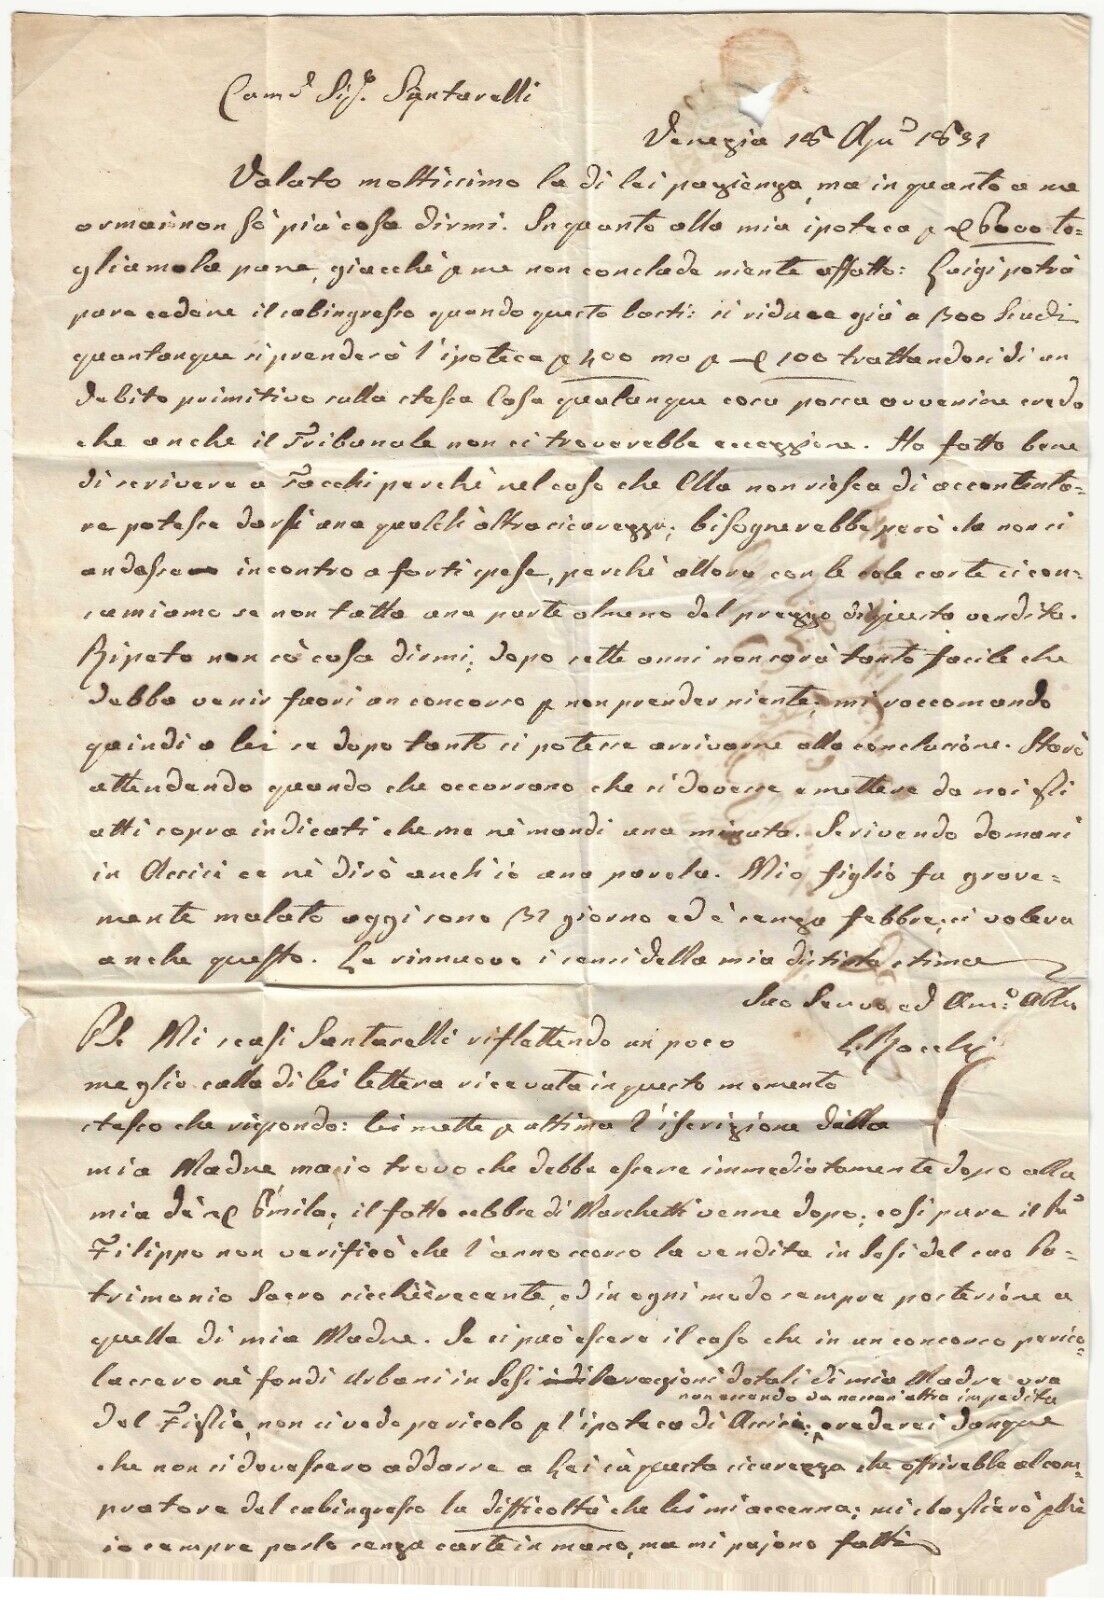 Cam.d Sig.r Santarelli
Venezia 18 Agu.o 1831
Valuto moltissimo la di lei pazienza, ma in quanto a me
ormai non sò più cosa dirmi. In quanto alla mia ipoteca p 6000 to-
gliamola pure, giacchè p me non conclude niente affatto: Luigi potrà
pure cedere il subingresso quando questo basti: si riduce già a 300 Scudi
quantunque si prenderà l'ipoteca p 400 ma p 100 trattandosi di un
debito primitivo sulla stessa Casa qualunque cosa possa avvenire credo
che anche il Tribunale non ci troverebbe eccezzione. Ha fatto bene
di scrivere a Facchi perchè nel caso che Ella non riesca di accontenta-
re potesse darsi una qualch'altra sicurezza; bisognerebbe però che non si
andasse incontro a forti spese, perchè allora con le sole carte ci con-
sumiamo se non tutta una parte almeno del prezzo di questa vendita.
Ripeto non sò cosa dirmi; dopo sette anni non sarà tanto facile che
debba venir fuori un concorso p non prender niente; mi raccomando
quindi a lei se dopo tanto si potesse arrivarne alla conclusione. Starò
attendendo quando che occorrano che si dovesse emettere da noi gli
atti sopra indicati che me nè mandi una minuta. Scrivendo domani
in Assisi ce nè dirò anch'io una parola. Mio figlio fu grave-
mente malato oggi sono 31 giorno ed è senza febbre; ci voleva
anche questo. Le rinnuovo i sensi della mia distinta stima
Suo Servo ed Am.o
L. Rocchi
PS Mi scusi Santarelli riflettendo un poco
meglio sulla di lei lettera ricevuta in questo momento
stesso che rispondo: lei mette p ultima l'iscrizione della
mia Madre ma io trovo che debbe essere immediatamente dopo alla
mia de 6 mila; il fatto debbre di Marchetti venne dopo; così pure il
Filippo non verificò che l'anno scorso la vendita in Sesi del suo Pa-
trimonio Sacro sicchè è recente, ed in ogni modo sempre posteriore a
quella di mia Madre. Se si può essere il caso che in un concorso perico-
lassero nè fondi Urbani in Sesi le ragioni dotali di mia Madre ora
non essendo da nessun'altra impedita
del Figlio, non ci vedo pericolo p l'ipoteca di Assisi; crederei dunque
che non si dovessero addurre a Lei su questa sicurezza che offrirebbe al com-
pratore del subingresso la difficoltà che lei mi accenna; mi sbaglierò p chè
io sempre parlo senza carte in mano, ma mi pajono fatti